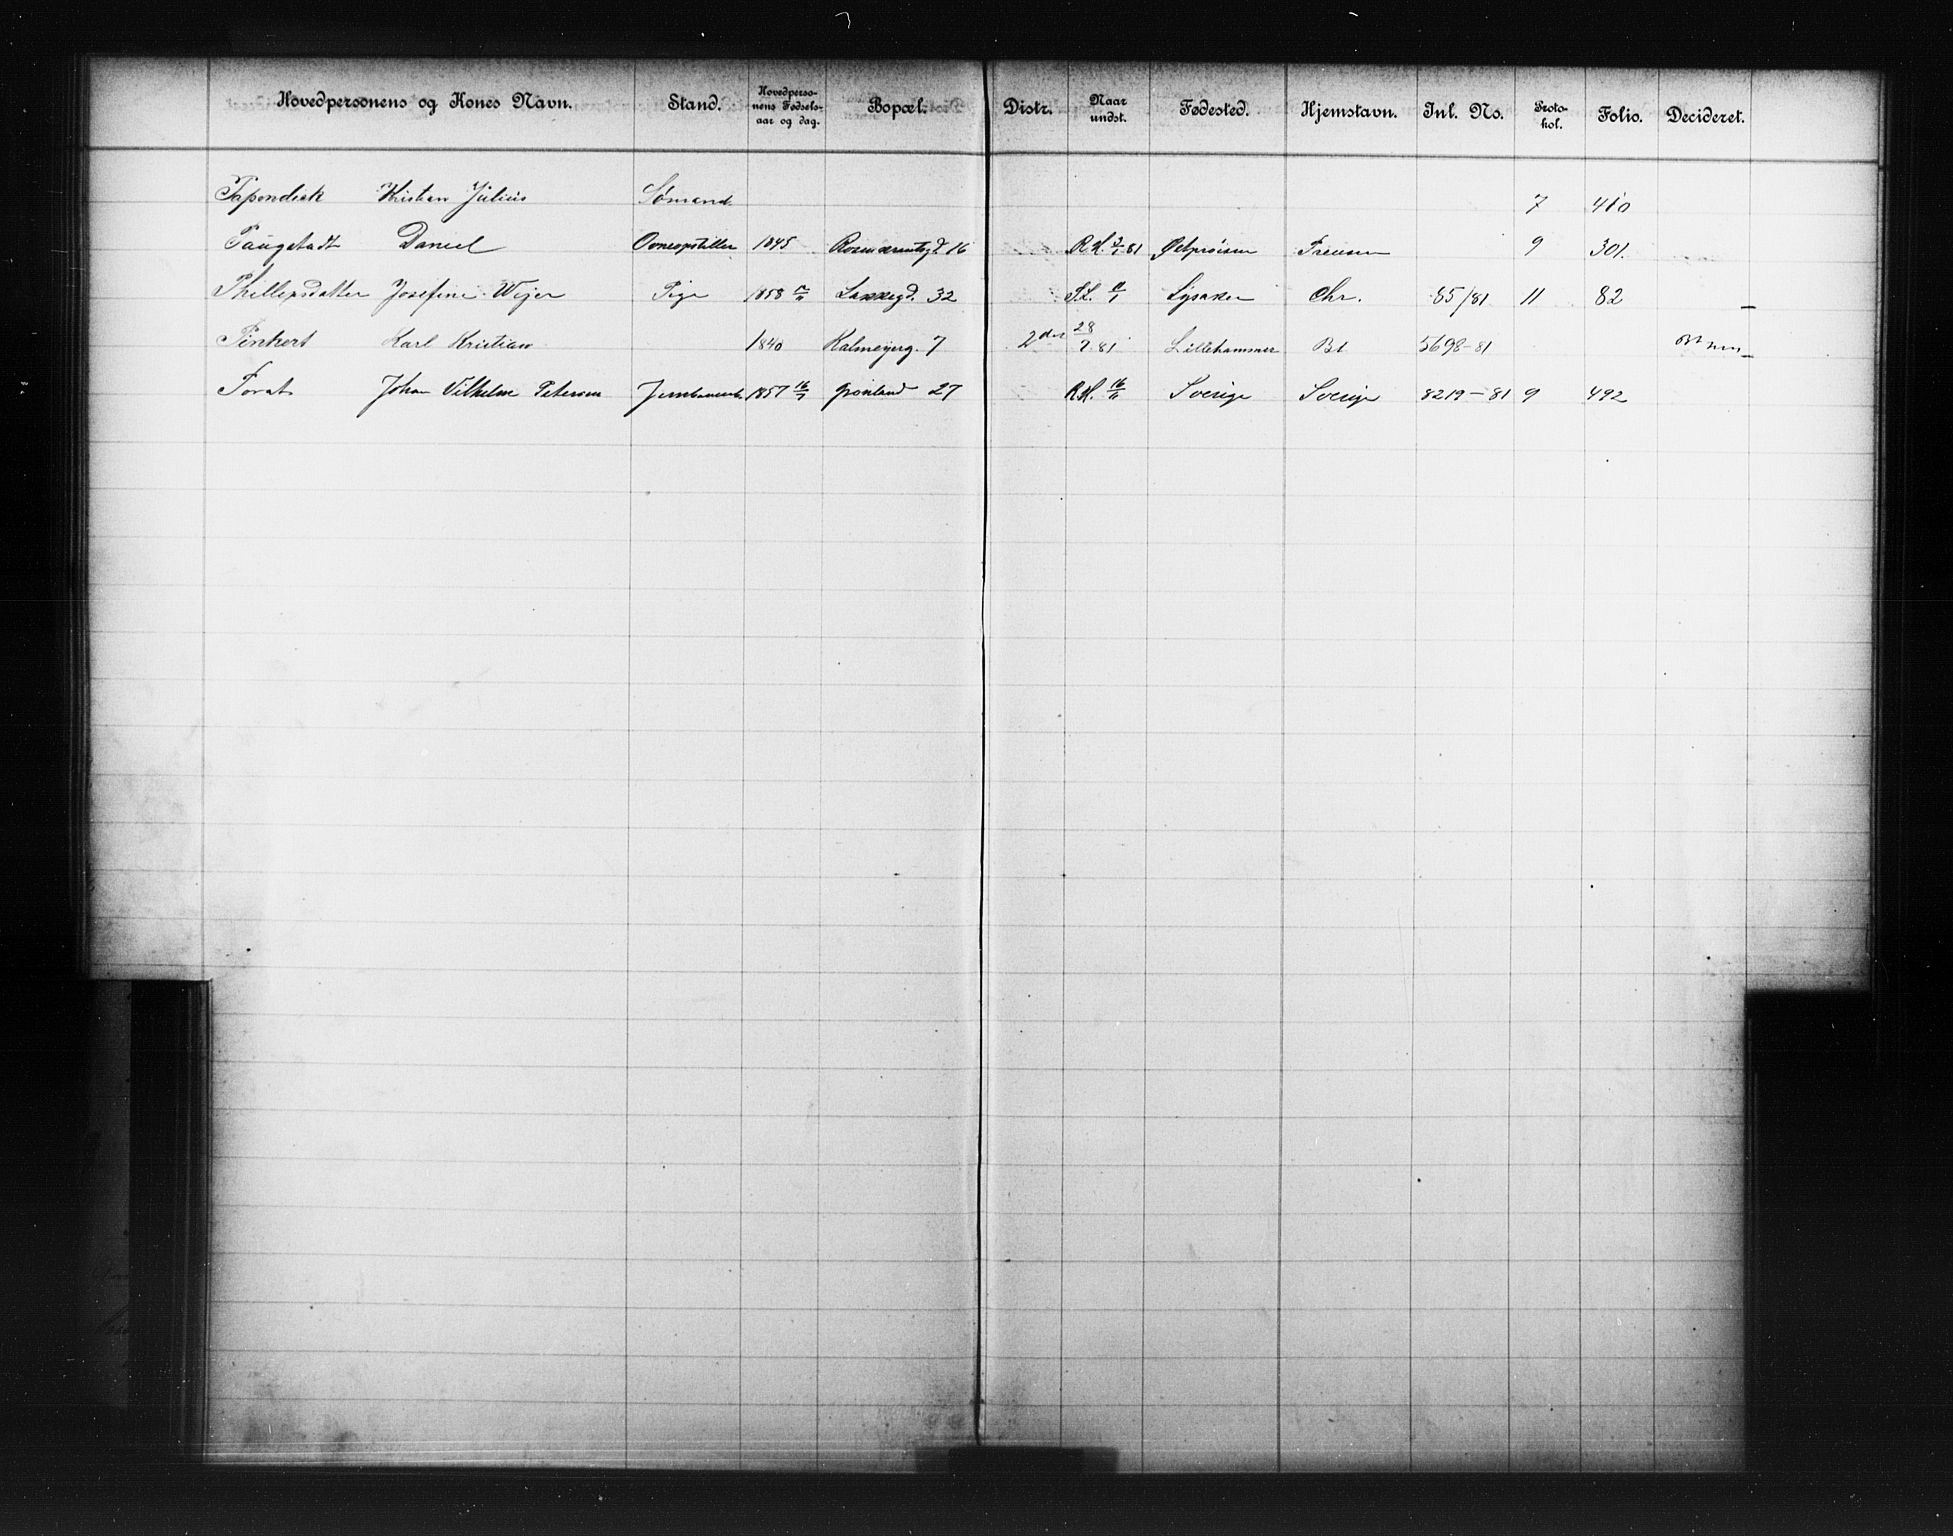 Hovedpersonens og Kones Navn. Stand. Hovedpersonens Fødselsaar og dag. Bopæl. Distr. Naar undst. Fødested. Hjemstavn. Inl. No. Protokol. Folio. Decideret.
Papendick Kristian Julius Sømand 7 410
Paugstadt Daniel Ovnsopstiller 1845 16 R.H. 81 Østprøisen Preusen 9 301.
Phillepsdatter Josefine Wejer Pige 1858 Lakkegd. 32 P.L. Lysaker Chr. 85/81 11 82
Pinkert Karl Kristian 1840 Kalmeyerg. 7 2det 28/7 81 Lillehammer 5698-81
Porat Johan Vilhelm Peterson 1857 Grønland 27 R.H. Sverige Sverige 8219-81 9 492